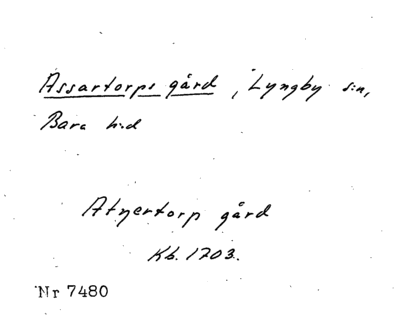 Assartorps gård, Lyngby s:n,
Bara h:d
Atyertorp gård
Kb. 1703.
Nr 7480